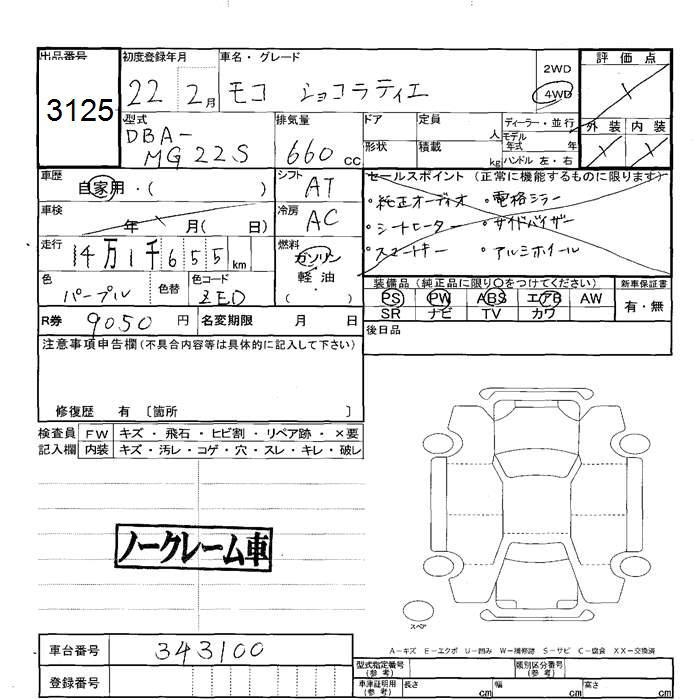 出品番号 初度登録年月 車名・グレード 評価点
3125 22 2月 モコ ショコラティエ 2WD 4WD
型式 排気量 ドア 定員 人 ディーラー・並行 外装 内装
DBA- MG22S 660 cc 形状 積載 kg モデル年式 年 ハンドル 左・右
車歴 自家用・( ) シフト AT セールスポイント(正常に機能するものに限ります)
・純正オーディオ ・電格ミラー
車検 年 月( 日) 冷房 AC ・シートヒーター ・サイドバイザー
走行 14万1千655km 燃料 ガソリン 軽油 ( ) ・スマートキー ・アルミホイール
色 パープル 色替 色コード ZED
装備品(純正品に限り○をつけてください) 新車保証書
PS PW ABS エアB AW 有・無
SR ナビ TV カワ
R券 9050円 名変期限 月 日 後日品
注意事項申告欄(不具合内容等は具体的に記入して下さい)
修復歴 有 〔箇所 〕
検査員 FW キズ・飛石・ヒビ割・リペア跡・×要
記入欄 内装 キズ・汚レ・コゲ・穴・スレ・キレ・破レ
ノークレーム車
スペア
A−キズ E−エクボ U−凹み W−補修跡 S−サビ C−腐食 XX−交換済
車台番号 343100 型式指定番号(参考) 類別区分番号(参考)
登録番号 車庫証明用(参考) 長さ cm 幅 cm 高さ cm